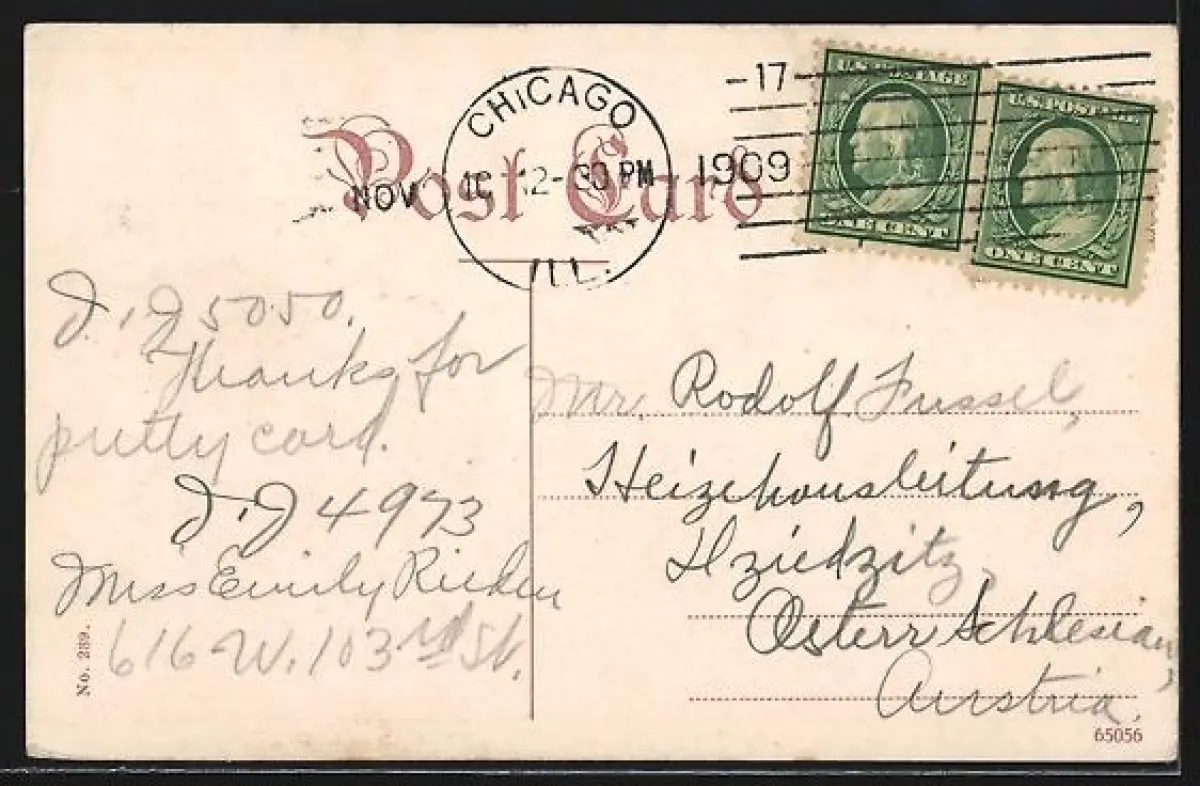 Post Card
CHICAGO
NOV 12-30 PM 1909
ILL.
-17-
U.S. POSTAGE
ONE CENT
U.S. POSTAGE
ONE CENT
J. J 5050.
Thanks for
putty card.
J. J 4973
Miss Emily
616 W. 103rd St.
No. 239.
Mr. Rodolf Fussel,
Heizehausleitung,
Hziedzitz,
Österr Schlesian,
Austria.
65056